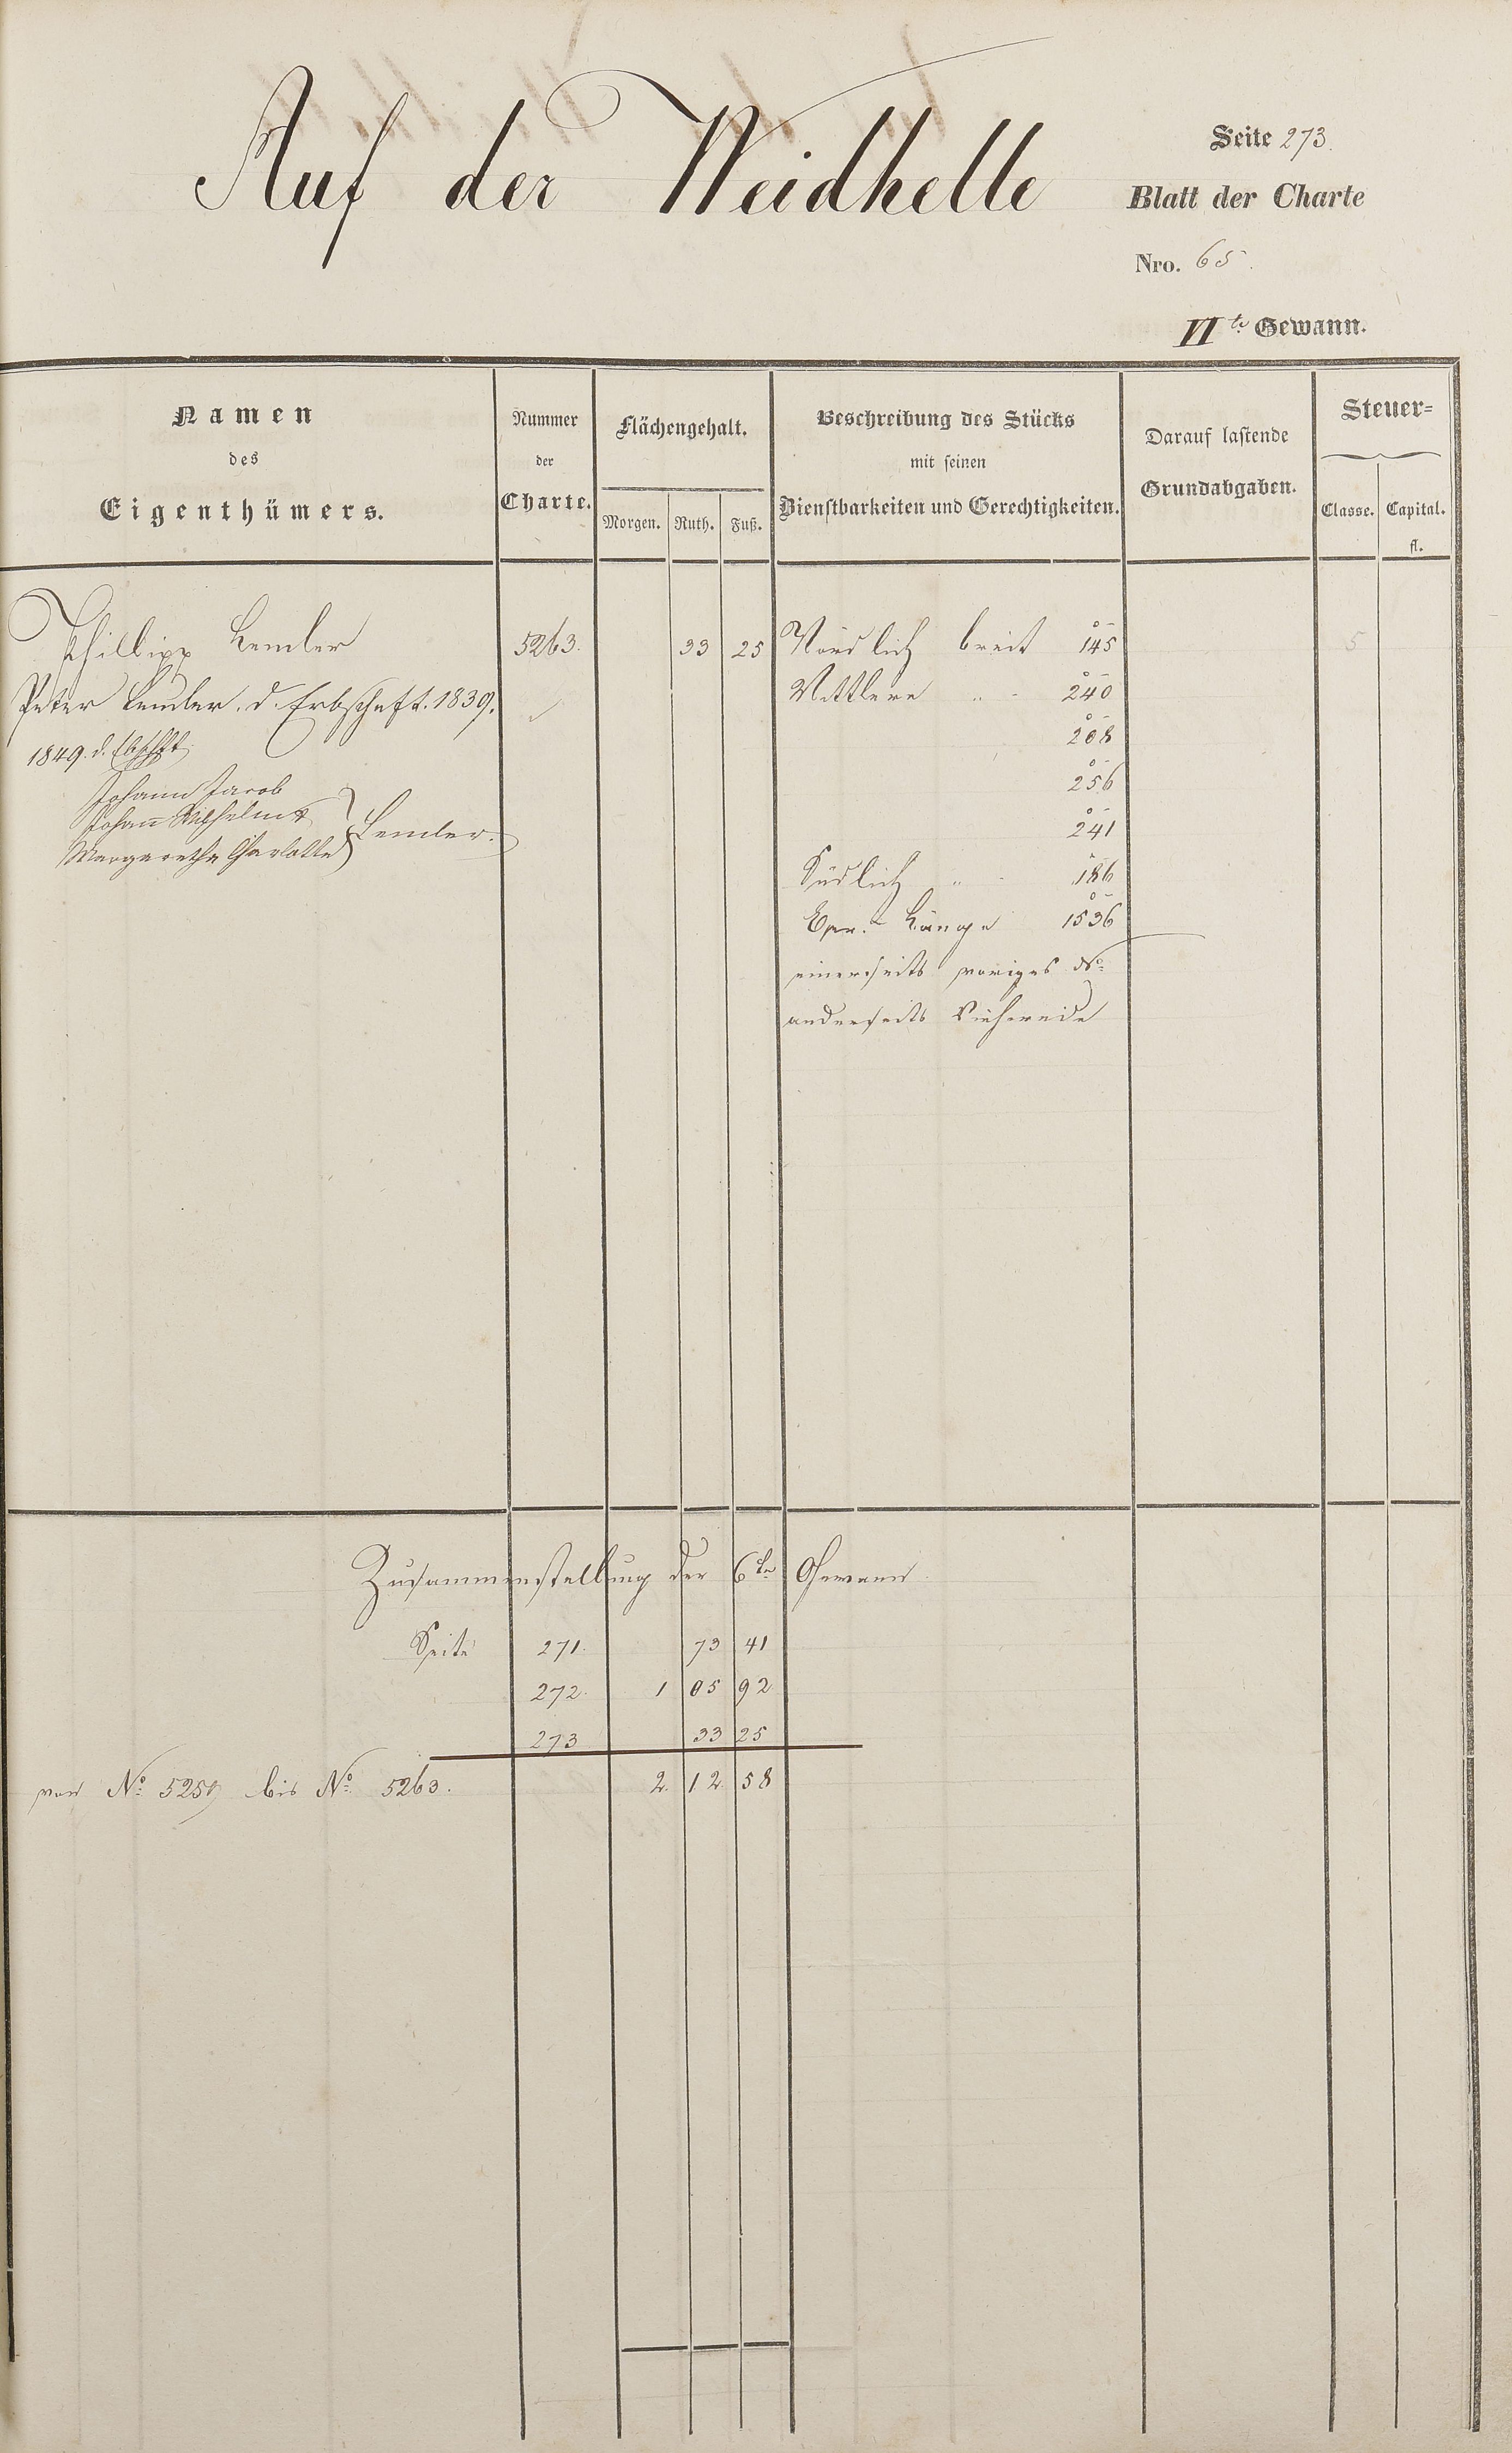 Auf der Weidhelle
Seite 273.
Blatt der Charte
Nro. 65.
VI te Gewann.
Namen
des
Eigenthümers.
Nummer
der
Charte.
Flächengehalt.
Morgen. Ruth. Fuß.
Beschreibung des Stücks
mit seinen
Dienstbarkeiten und Gerechtigkeiten.
Darauf lastende
Grundabgaben.
Steuer-
Classe. Capital.
fl.
Phillipp Lemler 5263. 33 25 Nördlich breit 145 5
Peter Lemler. d. Erbschaft. 1839. Mittlere " - 240
1849. d. Ebschft. 208
Johann Jacob 256
Johann Wilhelm Lemler. 241
Margaretha Charlotte
Südlich " - 186
Länge 1536
einerseits voriges No
anderseits Viehweide
Zusammenstellung der 6te Gewann
Seite 271. 73 41
272. 1 05 92
273 33 25
von No 5259 bis No 5263. 2 12 58